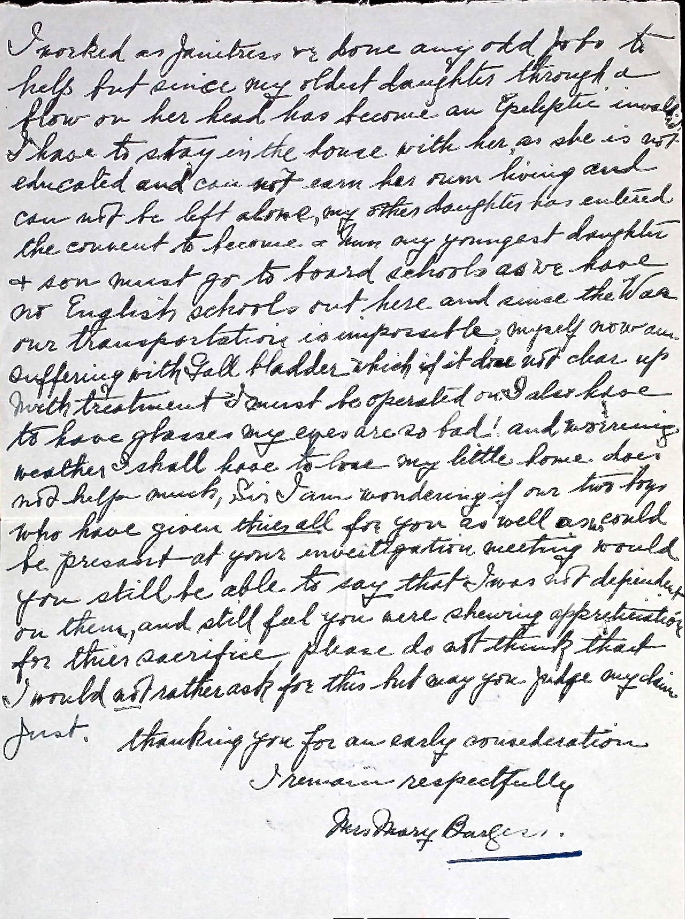 I worked as Janitress & done any odd Jobs to
help but since my oldest daughter through a
blow on her head has become an Epeleptic invalid
I have to stay in the house with her, as she is not
educated and can not earn her own living and
can not be left alone, my other daughter has entered
the convent to become a Nun my youngest daughter
& son must go to board schools as we have
no English schools out here and since the War
our transportation is impossible, myself now am
suffering with Gall bladder which if it does not clear up
with treatment I must be operated on I also have
to have glasses my eyes are so bad! and worrieing
weather I shall have to lose my little home does
not help much, Sir I am wondering if our two boys
who have given thier all for you as well as, could
be present at your investigation meeting would
you still be able to say that I was not dependent
on them, and still feel you were shewing appreticiation
for thier sacrifice please do not think that
I would not rather ask for this but may you judge my claim
Just.
thanking you for an early consideration
I remain respectfully
Mrs Mary